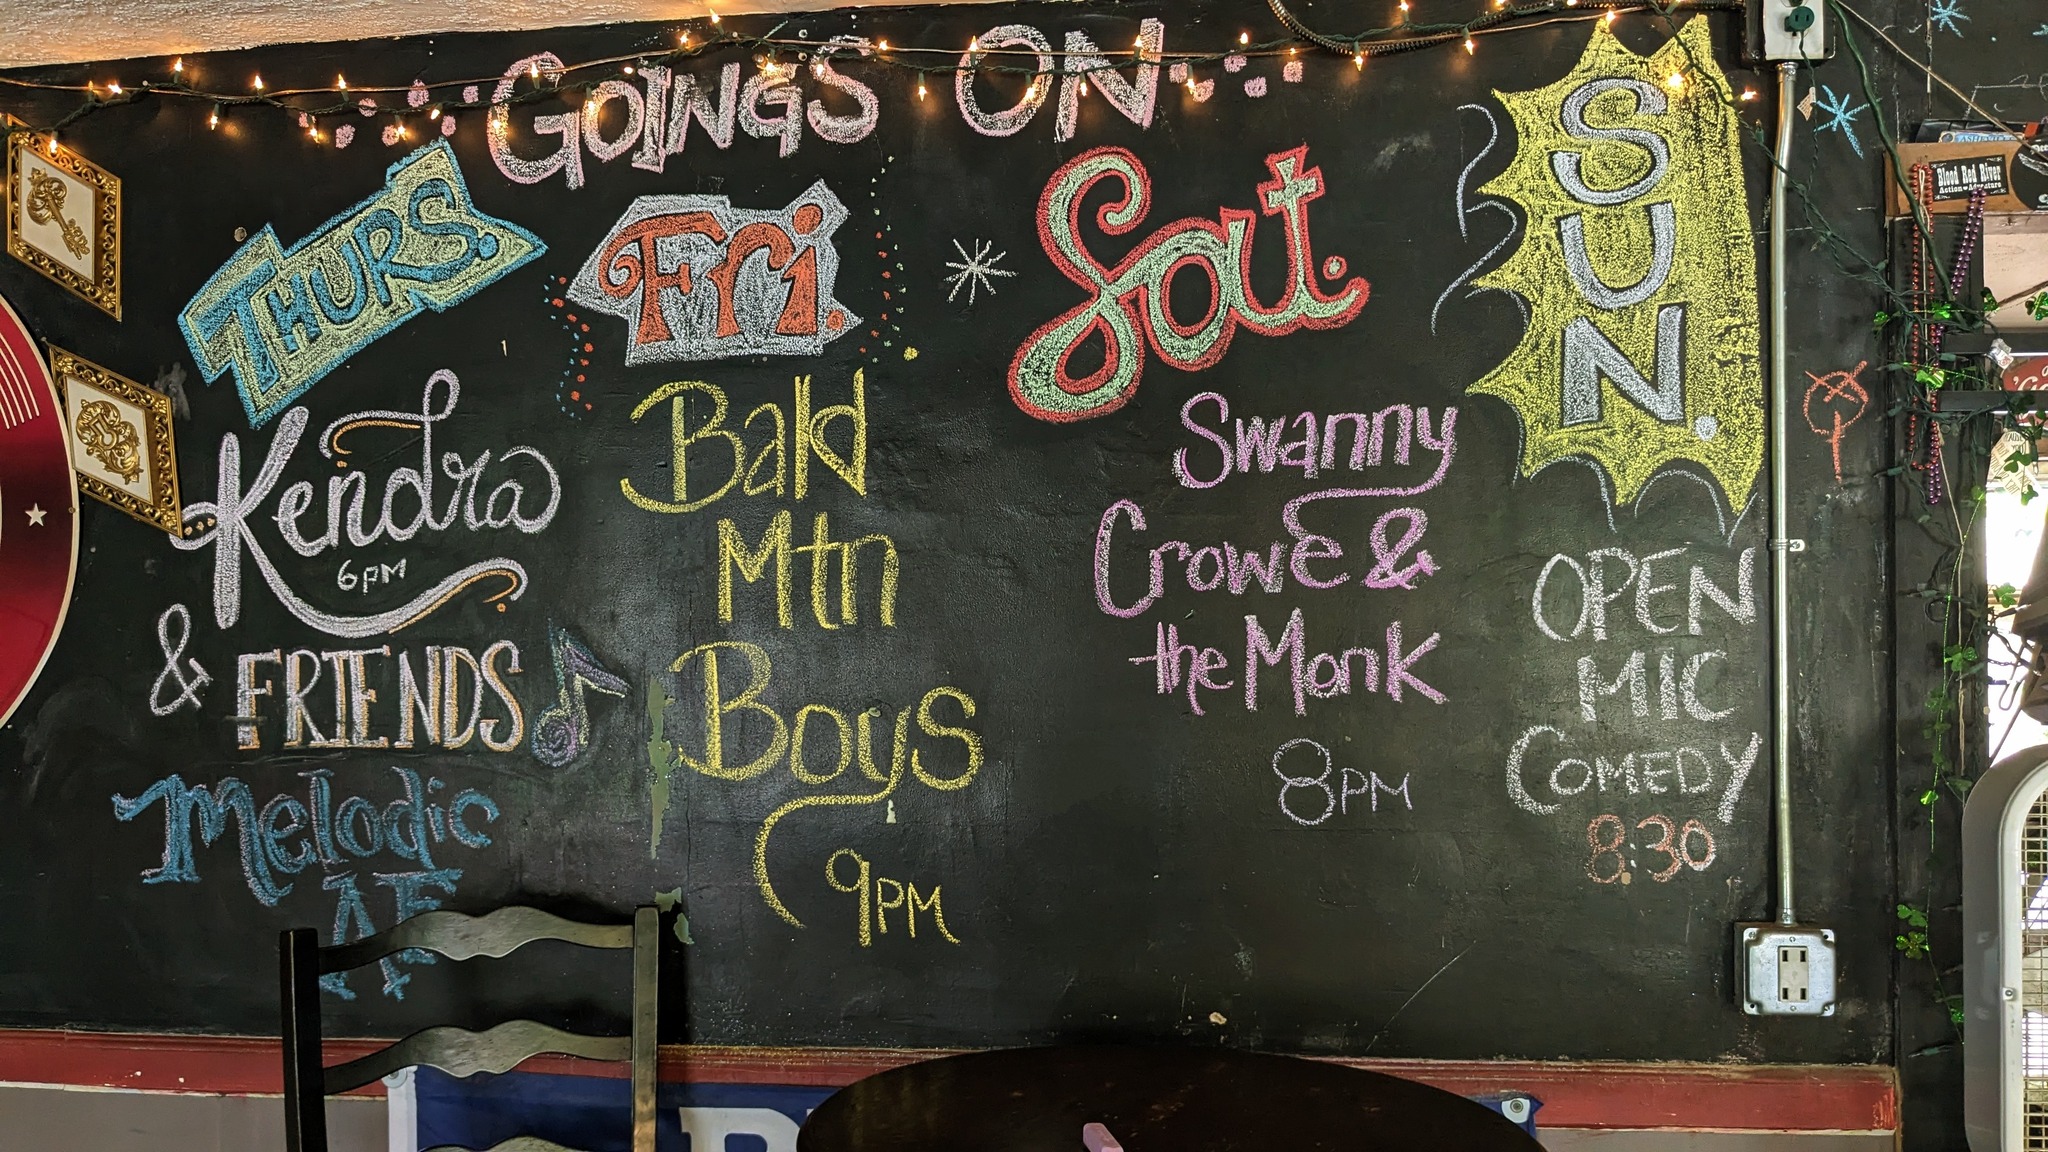 GOINGS ON
THURS.
Kendra
6PM
& FRIENDS
Melodic
AF
Fri.
Bald
Mtn
Boys
9PM
Sat.
Swanny
CrowE &
the Monk
8PM
SUN.
OPEN
MIC
COMEDY
8:30
Blood Red River